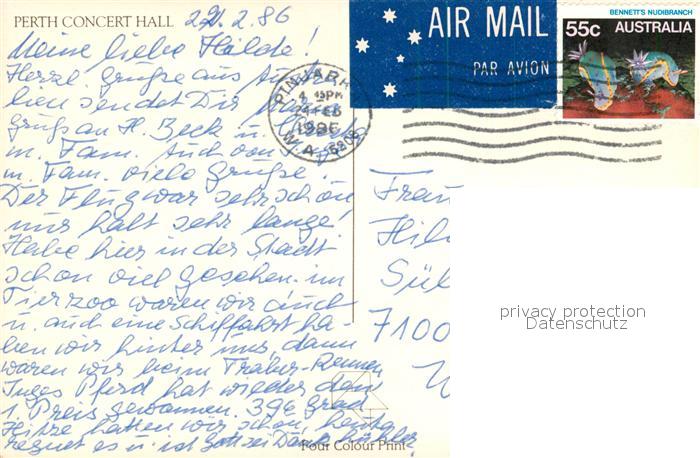 PERTH CONCERT HALL 22.2.86
Meine liebe Hilde!
Herzl. Grüsse aus Austra-
lien sendet Dir
Gruß an H. Beck u.
m. Fam. Auch von
m. Fam. viele Grüße.
Der Flug war sehr schön,
nur halt sehr lange.
Habe hier in der Stadt
schon viel gesehen. im
Tierzoo waren wir auch
u. auch eine Schiffahrt ha-
ben wir hinter uns, dann
waren wir beim Traber-Rennen
Inges Pferd hat wieder den
1. Preis gewonnen. 39° Grad
Hitze hatten wir schon, heute
regnet es u. ist Gott sei Dank kühler.
Four Colour Print
AIR MAIL
PAR AVION
BENNETT'S NUDIBRANCH
55c AUSTRALIA
PINJARRA
4 45PM
FEB
1986
W.A. 6208
Frau
Hil
Sül
7100
W
privacy protection
Datenschutz